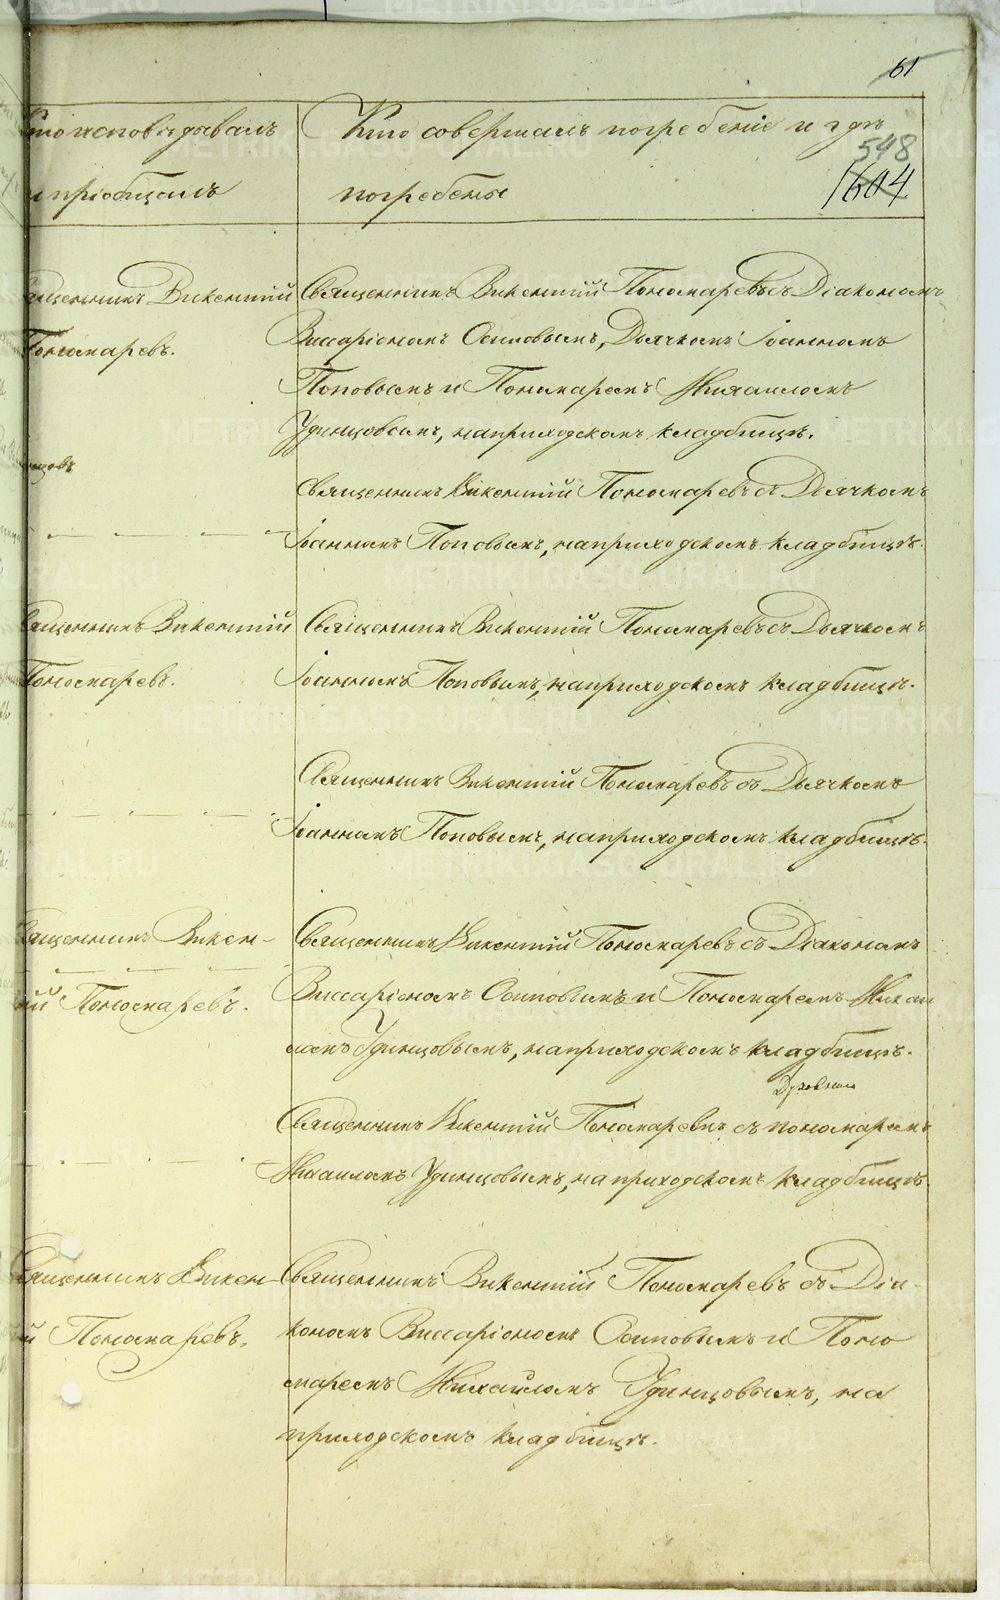 61
Кто исповѣдывалъ
и пріобщалъ
Кто совершалъ погребеніе и гдѣ
погребены
548
1604
Священникъ Викентій
Пономаревъ.
Священникъ Викентій Пономаревъ съ Діакономъ
Виссаріономъ Осиповымъ, Дьячкомъ Іоанномъ
Поповымъ и Пономаремъ Михаиломъ
Удинцовымъ, на приходскомъ кладбищѣ.
нцовъ
Священникъ Викентій Пономаревъ съ Дьячкомъ
Іоанномъ Поповымъ, на приходскомъ кладбищѣ.
Священникъ Викентій
Пономаревъ.
Священникъ Викентій Пономаревъ съ Дьячкомъ
Іоанномъ Поповымъ, на приходскомъ кладбищѣ.
Священникъ Викентій Пономаревъ съ Дьячкомъ
Іоанномъ Поповымъ, на приходскомъ кладбищѣ.
Священникъ Викен-
тій Пономаревъ.
Священникъ Викентій Пономаревъ съ Діакономъ
Виссаріономъ Осиповымъ и Пономаремъ Михаи
ломъ Удинцовымъ, на приходскомъ кладбищѣ.
Священникъ Викентій Пономаревъ съ пономаремъ
Михаиломъ Удинцовымъ, на приходскомъ кладбищѣ.
Священникъ Викен-
й Пономаревъ.
Священникъ Викентій Пономаревъ съ Діа-
кономъ Виссаріономъ Осиповымъ и Поно
маремъ Михайломъ Удинцовымъ, на
приходскомъ кладбищѣ.
METRIKI.GASO-URAL.RU